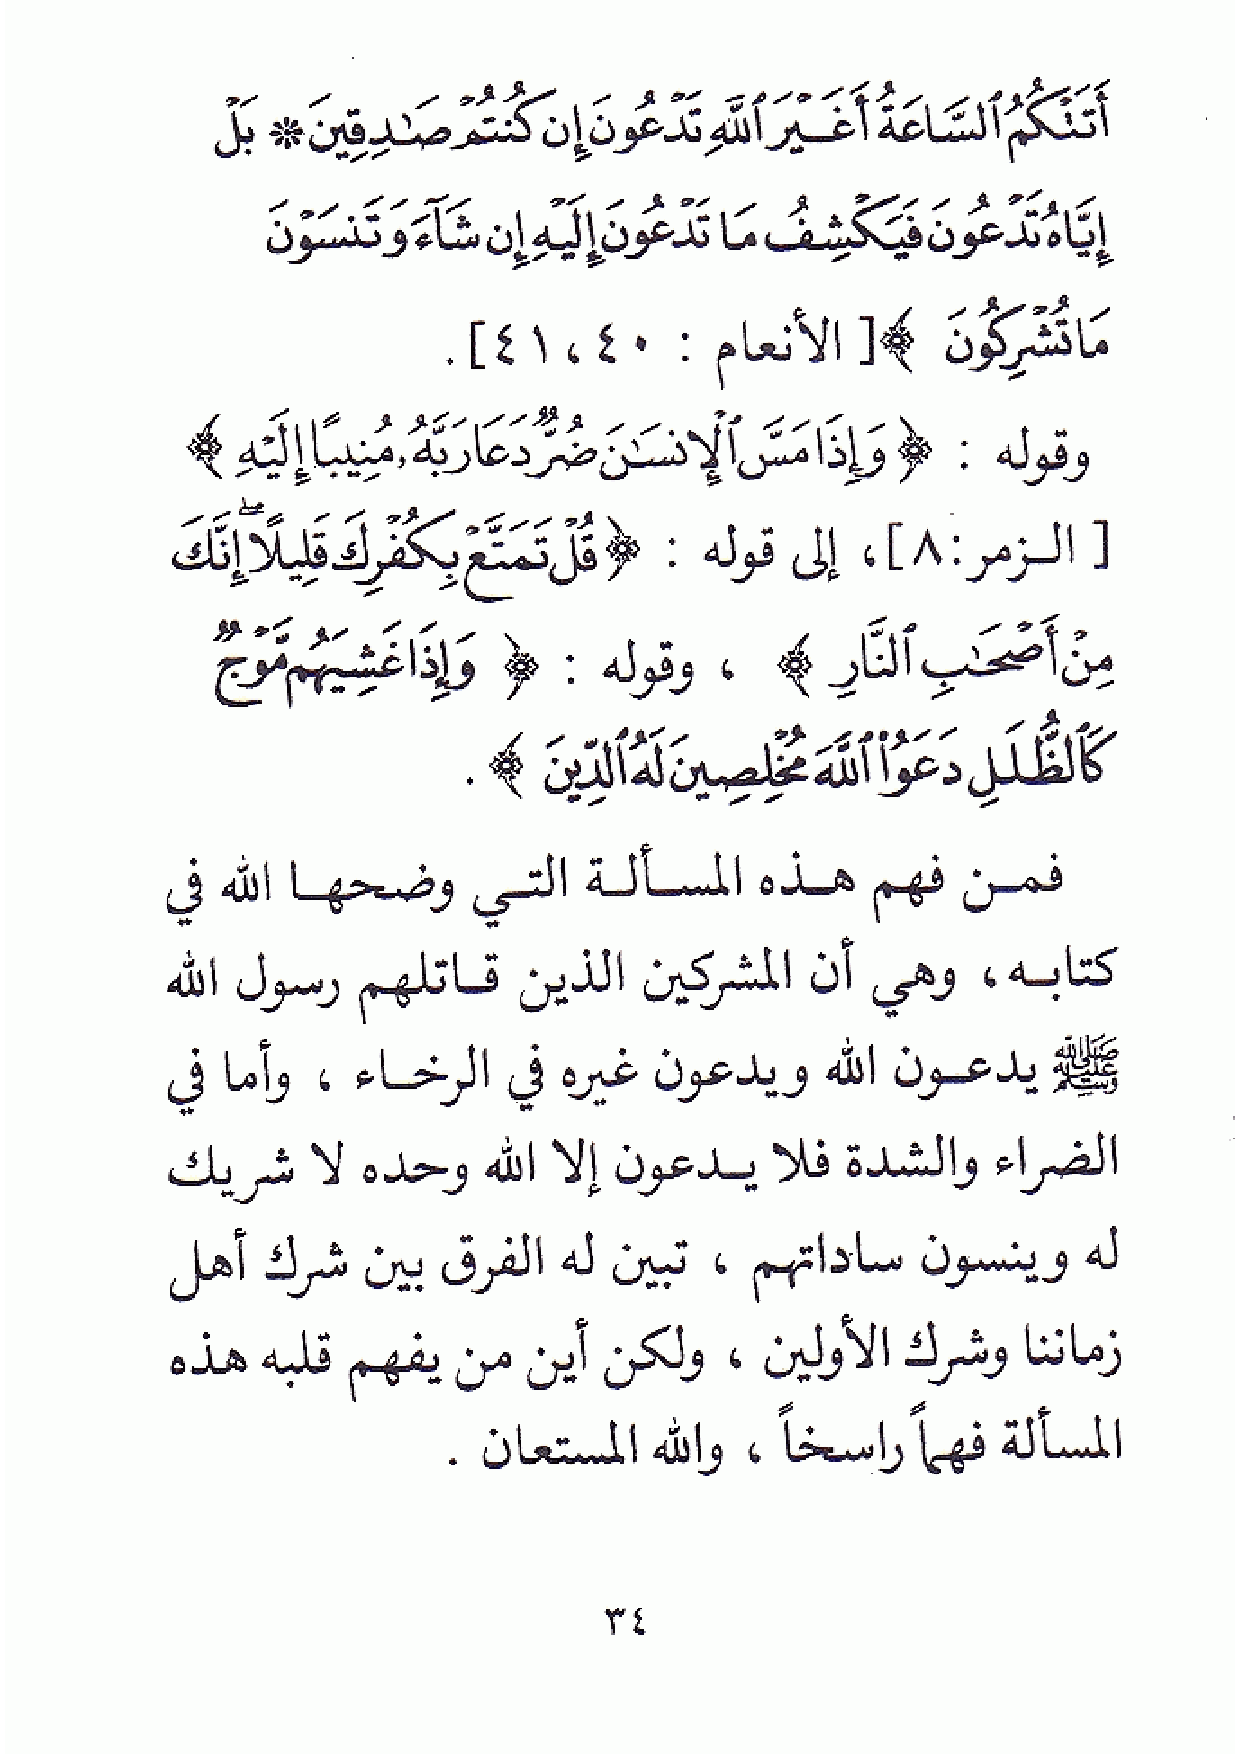 أَتَتْكُمُ ٱلسَّاعَةُ أَغَيْرَ ٱللَّهِ تَدْعُونَ إِن كُنتُمْ صَٰدِقِينَ * بَلْ
إِيَّاهُ تَدْعُونَ فَيَكْشِفُ مَا تَدْعُونَ إِلَيْهِ إِن شَآءَ وَتَنسَوْنَ
مَا تُشْرِكُونَ ﴾ [ الأنعام : ٤٠ ، ٤١ ] .
وقوله : ﴿ وَإِذَا مَسَّ ٱلْإِنسَٰنَ ضُرٌّ دَعَا رَبَّهُۥ مُنِيبًا إِلَيْهِ ﴾
[ الـزمر : ٨ ] ، إلى قوله : ﴿ قُلْ تَمَتَّعْ بِكُفْرِكَ قَلِيلًا ۖ إِنَّكَ
مِنْ أَصْحَٰبِ ٱلنَّارِ ﴾ ، وقوله : ﴿ وَإِذَا غَشِيَهُم مَّوْجٌ
كَٱلظُّلَلِ دَعَوُا۟ ٱللَّهَ مُخْلِصِينَ لَهُ ٱلدِّينَ ﴾ .
فمـن فهم هـذه المسـألـة التـي وضـحهـا الله في
كتابـه ، وهي أن المشركين الذين قـاتلهم رسول الله
ﷺ يدعـون الله ويدعون غيره في الرخـاء ، وأما في
الضراء والشدة فلا يـدعون إلا الله وحده لا شريك
له وينسون ساداتهم ، تبين له الفرق بين شرك أهل
زماننا وشرك الأولين ، ولكن أين من يفهم قلبه هذه
المسألة فهماً راسخاً ، والله المستعان .
٣٤